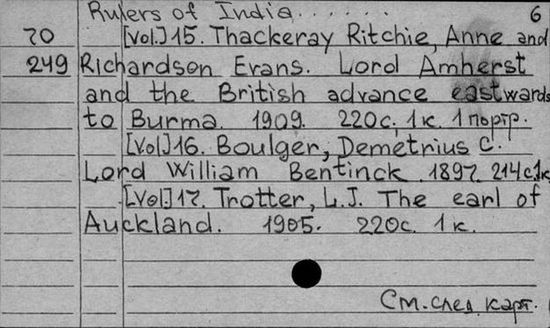 Rulers of India...... 6
20 [Vol.] 15. Thackeray Ritchie, Anne and
249 Richardson Evans. Lord Amherst
and the British advance eastwards
to Burma. 1909. 220с. 1к. 1 портр.
[Vol] 16. Boulger, Demetrius C.
Lord William Bentinck 1897. 214с. 1к
[Vol.] 17. Trotter, L.J. The earl of
Auckland. 1905. 220с. 1к.
См. след. карт.